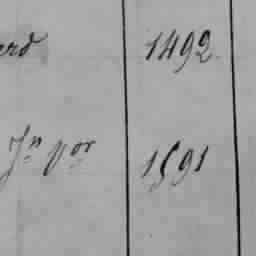 erd 1492
Jn por 1591